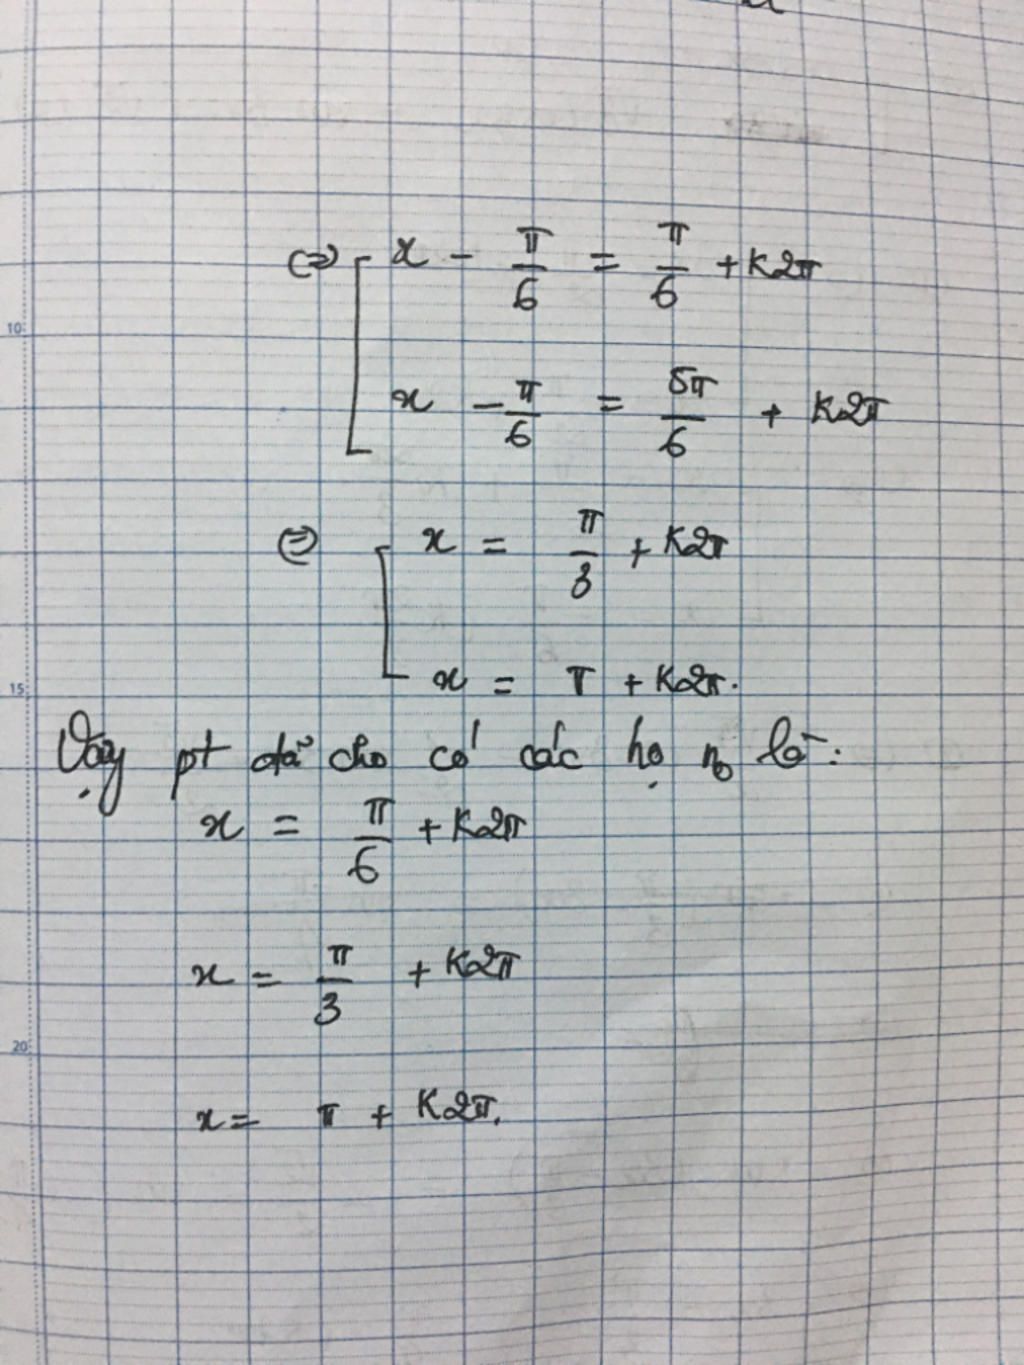 ⇔ [ x - π/6 = π/6 + k2π
x - π/6 = 5π/6 + k2π
⇔ [ x = π/3 + k2π
x = π + k2π.
Vậy pt đã cho có các họ no là:
x = π/6 + k2π
x = π/3 + k2π
x = π + k2π.
10
15
20